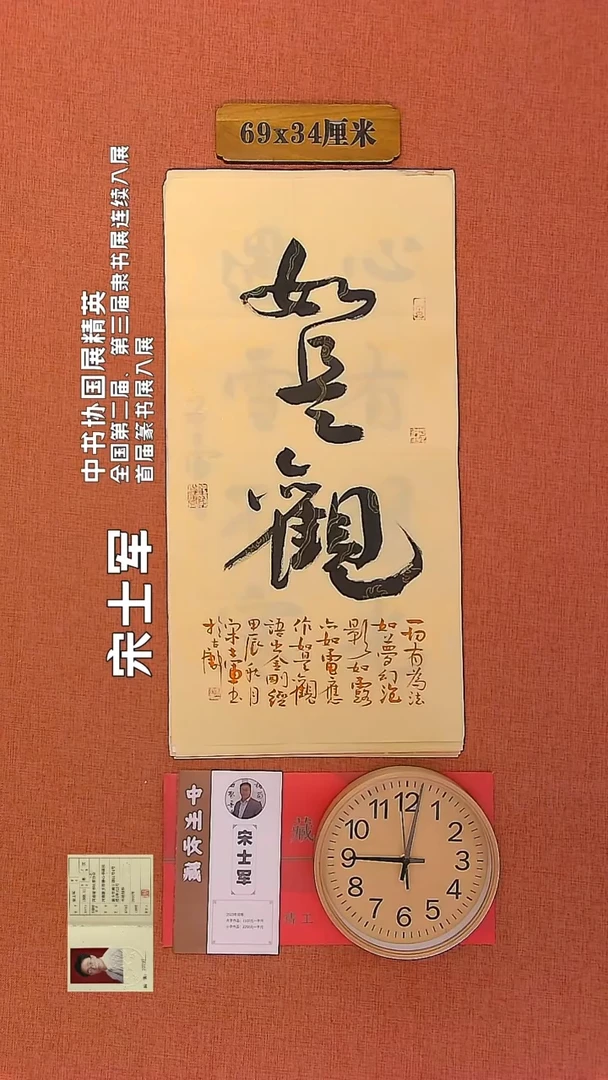 69x34厘米
如是觀
一切有為法
如夢幻泡
影如露
亦如電應
作如是觀
語出金剛經
甲辰秋月
宋士軍书
中书协国展精英
全国第二届、第三届隶书展连续入展
首届篆书展入展
宋士军
中州收藏
宋士军
藏
12
1
2
3
4
5
6
7
8
9
10
11